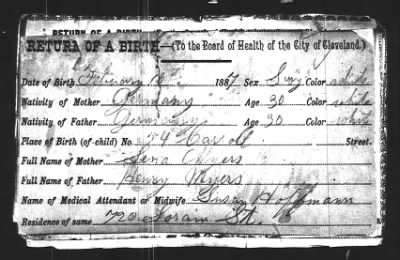 RETURN OF A BIRTH
RETURN OF A BIRTH—(To the Board of Health of the City of Cleveland.)
Date of Birth February 1887 Sex Boy Color white
Nativity of Mother Germany Age 30 Color white
Nativity of Father Germany Age 30 Color white
Place of Birth (of child) No. 54 Carroll Street.
Full Name of Mother Lena Myers
Full Name of Father Henry Myers
Name of Medical Attendant or Midwife Susan Hoffmann
Residence of same 720 Lorain St.